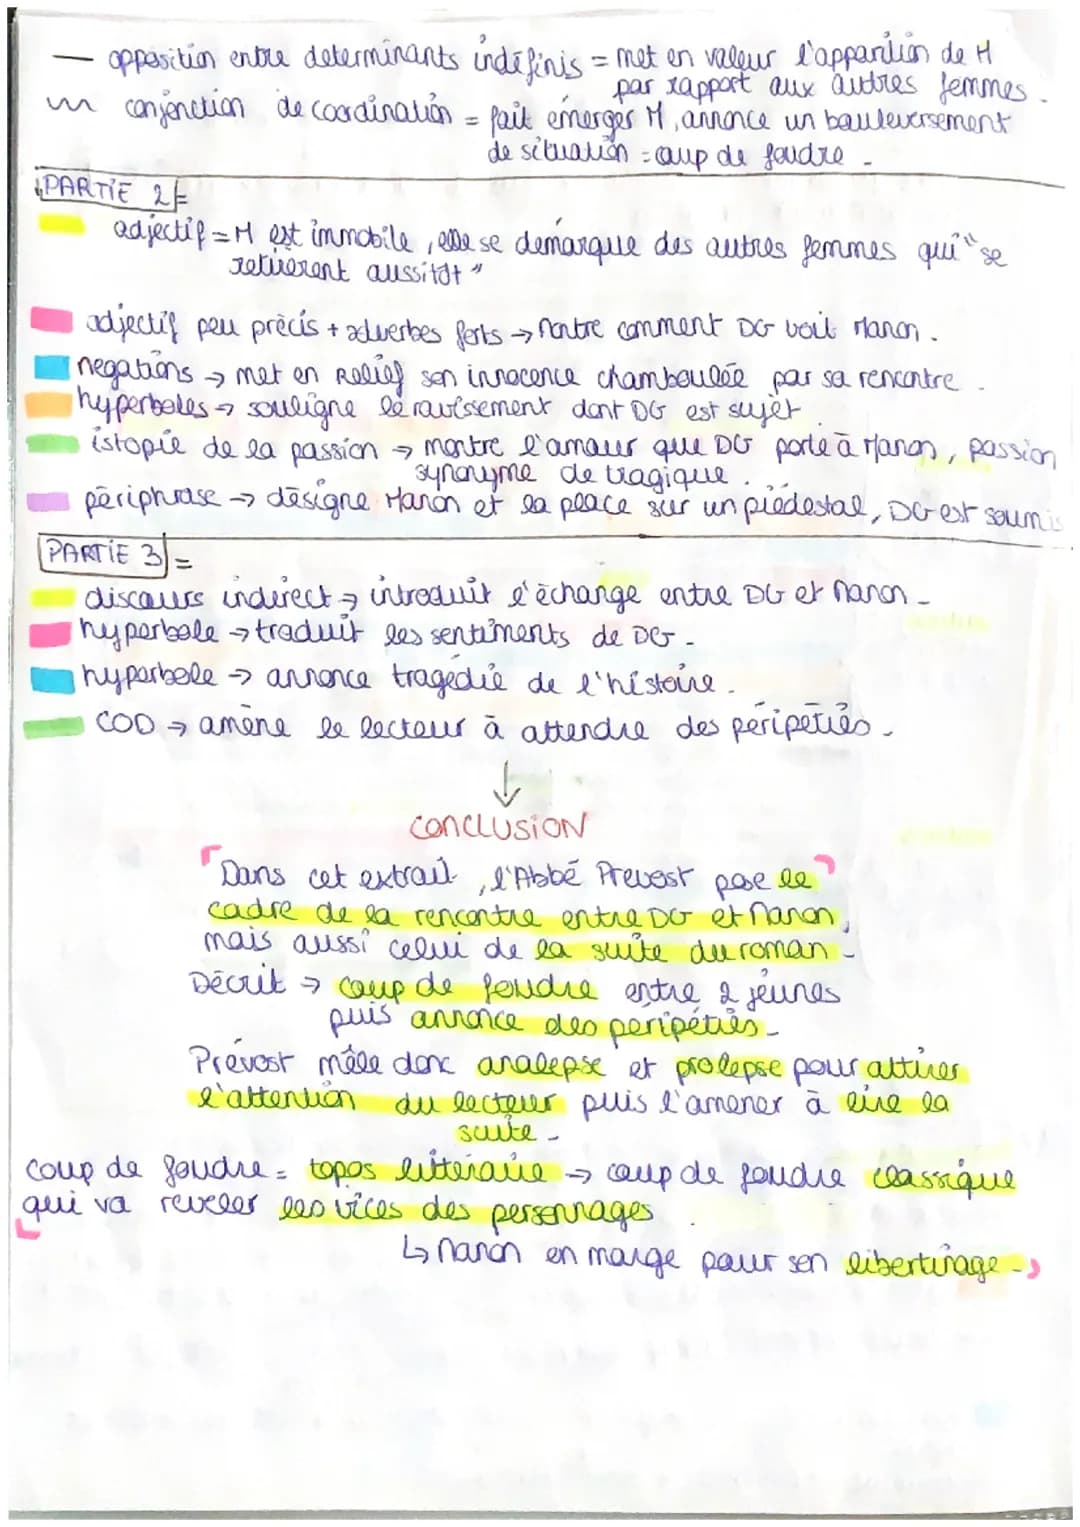 — opposition entre determinants indéfinis = met en valeur l'apparition de M
par rapport aux autres femmes.
conjonction de coordination = fait émerger M, annonce un bouleversement
de situation = coup de foudre -
PARTIE 2 =
adjectif = M est immobile, elle se démarque des autres femmes qui "se
retirèrent aussitôt"
adjectif peu précis + adverbes forts → montre comment DG voit Manon.
negations → met en relief son innocence chamboulée par sa rencontre.
hyperboles → souligne le ravissement dont DG est sujet
istopie de la passion → montre l'amour que DG porte à Manon, passion
synonyme de tragique.
périphrase → désigne Manon et la place sur un piédestal, DG est soumis
PARTIE 3 =
discours indirect → introduit l'échange entre DG et Manon -
hyperbole → traduit les sentiments de DG -
hyperbole → annonce tragédie de l'histoire.
COD → amène le lecteur à attendre des péripéties -
↓
CONCLUSION
Dans cet extrait, l'Abbé Prevost pose le
cadre de la rencontre entre DG et Manon,
mais aussi celui de la suite du roman -
Décrit → coup de foudre entre 2 jeunes
puis annonce des péripéties -
Prévost mêle donc analepse et prolepse pour attirer
l'attention du lecteur puis l'amener à lire la
suite -
coup de foudre = topos littéraire → coup de foudre classique
qui va reveler les vices des personnages.
↳ Manon en marge pour son libertinage -